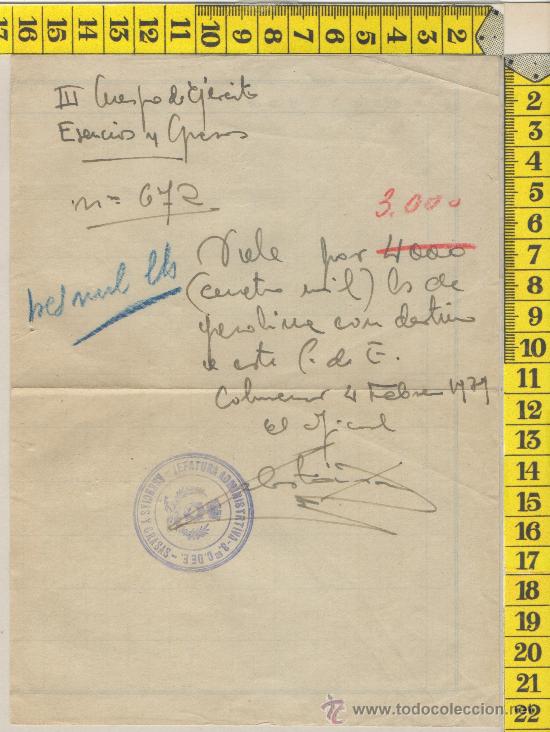 III Cuerpo de Ejército
Esencias y Grasas
nº 672
3.000
Vale por 4000
tres mil lts
(cuatro mil) ls de
gasolina con destino
a este C. de E.
Colmenar 4 Febrero 1939
el Oficial
ESENCIAS Y GRASAS - JEFATURA ADMINISTRATIVA - 3er C. DE E. -
17 16 15 14 13 12 11 10 9 8 7 6 5 4 3 2
2
3
4
5
6
7
8
9
10
11
12
13
14
15
16
17
18
19
20
21
22
todocoleccion
www.todocoleccion.net